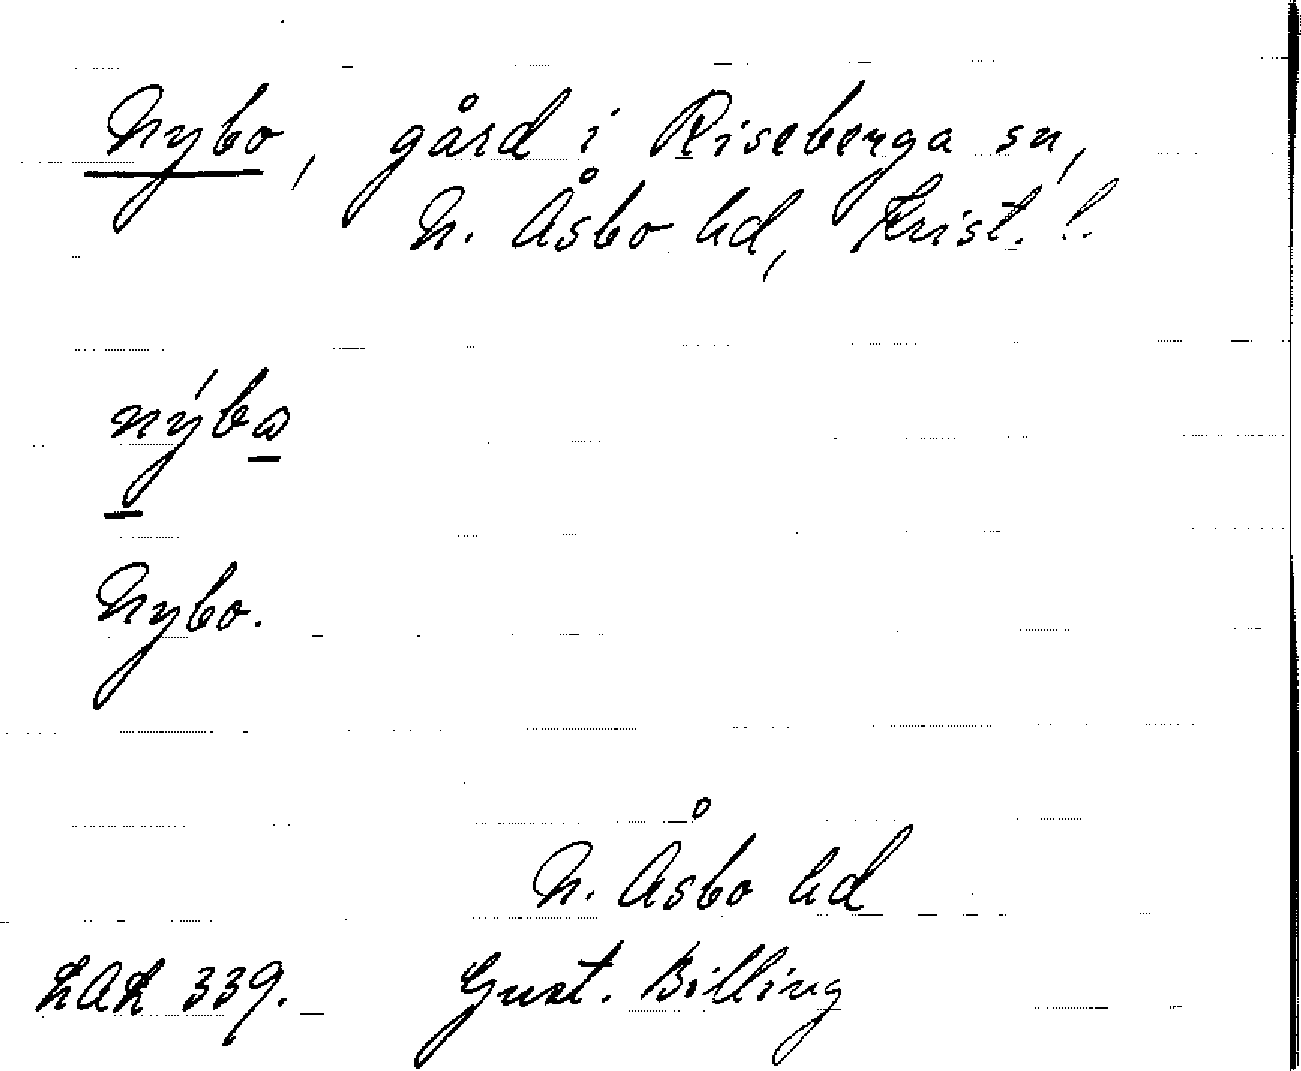 Nybo, gård i Riseberga sn,
N. Åsbo hd, Krist. l.
nýbω
Nybo.
N. Åsbo hd
LAL 339. Gust. Billing